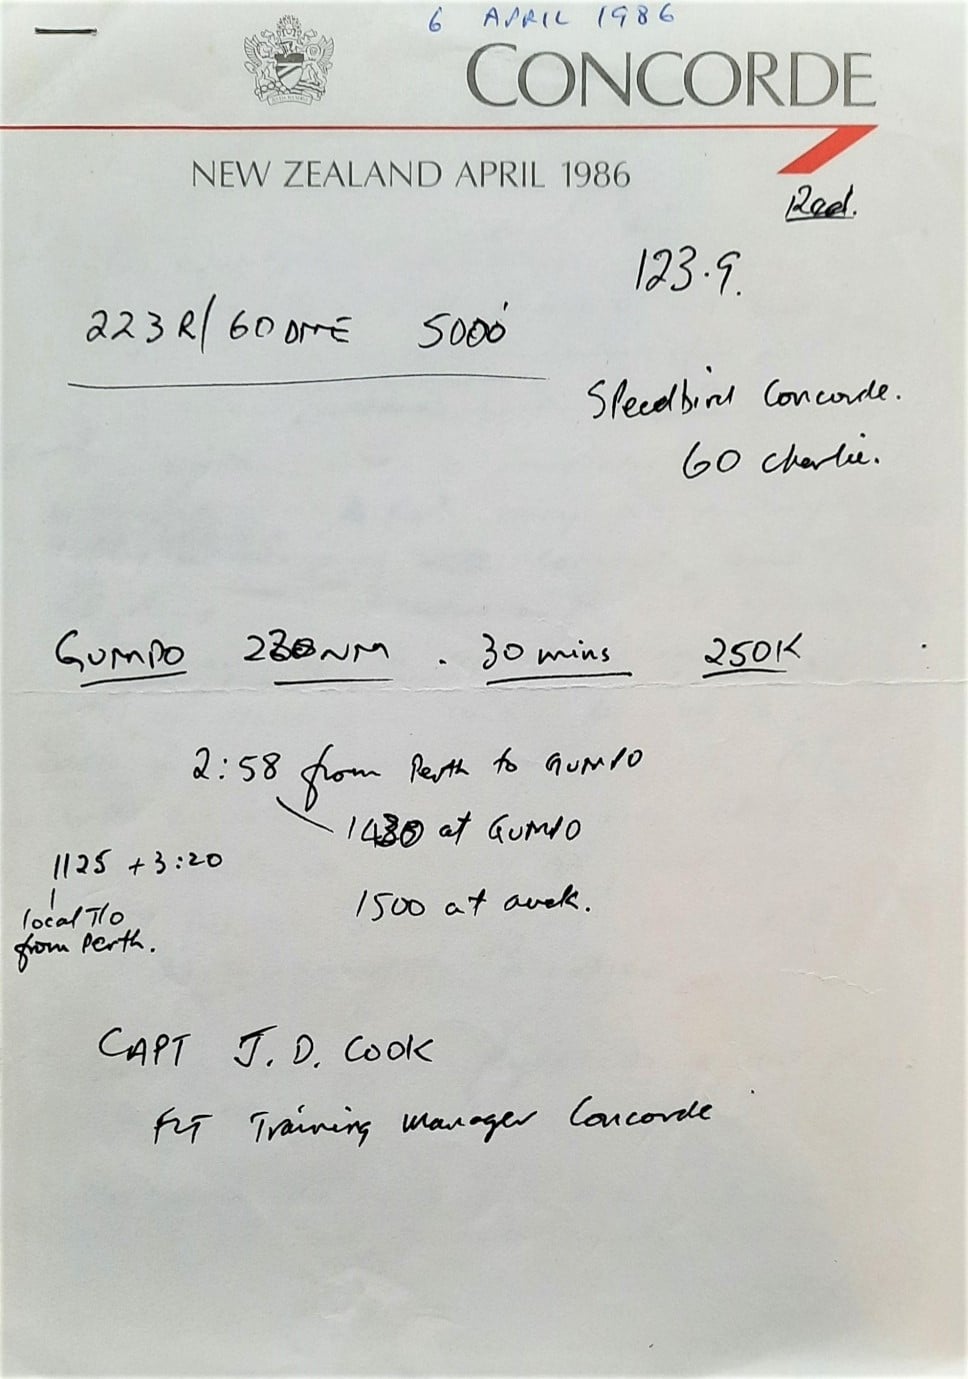 6 APRIL 1986
CONCORDE
NEW ZEALAND APRIL 1986
Rad.
123.9.
223R/60DME 5000'
Speedbird Concorde.
60 Charlie.
GUMPO NM . 30 mins 250K
2:58 from Perth to GUMPO
at GUMPO
1125 + 3:20
1500 at auck.
local T/O
from Perth.
CAPT J. D. COOK
FLT Training Manager Concorde